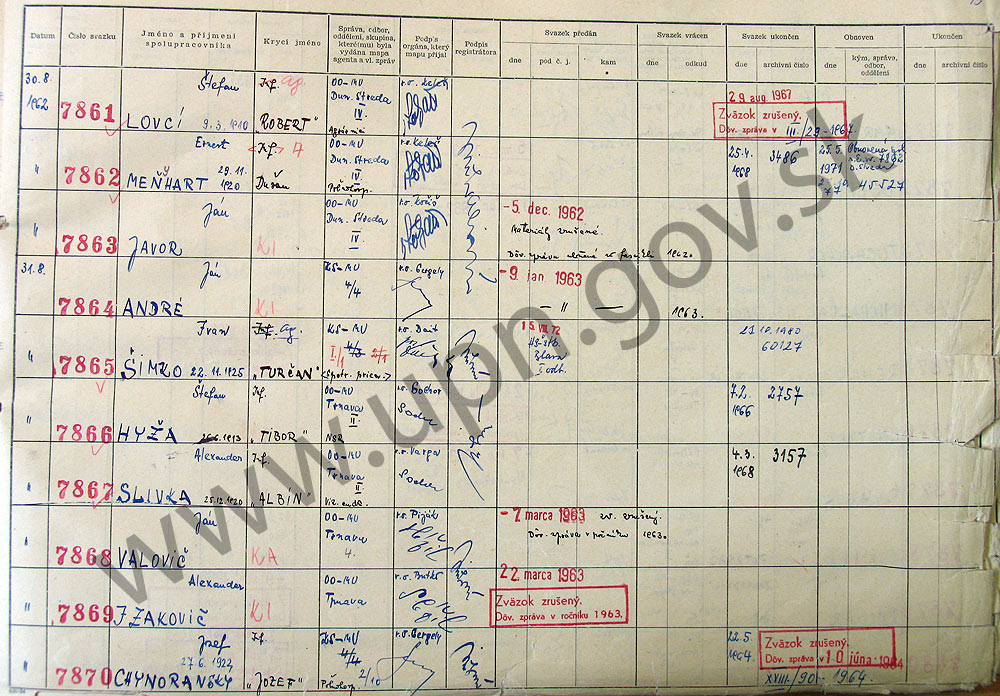 Datum
Číslo svazku
Jméno a příjmení
spolupracovníka
Krycí jméno
Správa, odbor,
oddělení, skupina,
které(mu) byla
vydána mapa
agenta a vl. zpráv
Podpis
orgána, který
mapu přijal
Podpis
registrátora
Svazek předán
dne
pod č. j.
kam
Svazek vrácen
dne
odkud
Svazek ukončen
dne
archivní číslo
Obnoven
dne
kým, správa,
odbor,
oddělení
Ukončen
dne
archivní číslo
30.8.
1962
7861
Štefan
LOVCÍ 9.3.1910
Inf. ag.
"ROBERT"
OO-MV
Dun. Streda
IV.
29 aug 1967
Zväzok zrušený.
Dôv. zpráva v III/29-1967.
"
7862
Ernest
MEŇHART
29.11.
1920
Dušan
OO-MV
Dun. Streda
IV.
25.4.
1968
3486
25.5.
1971
45527
"
7863
Ján
JAVOR
KI
OO-MV
Dun. Streda
IV
-5. dec. 1962
Materiály zrušené.
31.8.
7864
Ján
ANDRÉ
KI
KS-MV
4/4
r.s. Gergely
-9. jan 1963
— " —
1963.
"
7865
Ivan
ŠIMKO 22.11.1925
Inf. Ag.
"TURČAN"
KS-MV
4/3
I/1
2/1
15. VIII. 72
21.10.1980
60127
"
7866
Štefan
HYŽA
Inf.
"TIBOR"
OO-MV
Trnava
II
NSR
7.2.
1966
2757
"
7867
Alexander
SLIVKA 25.12.1920
Inf.
"ALBÍN"
OO-MV
Trnava
II.
4.3.
1968
3157
"
7868
Ján
VALOVIČ
KA
OO-MV
Trnava
4.
-7. marca 1963 zv. zrušený.
Dôv. zpráva v ročníku 1963.
"
7869
Alexander
IZAKOVIČ
KI
OO-MV
Trnava
22. marca 1963
Zväzok zrušený.
Dôv. zpráva v ročníku 1963.
"
7870
Jozef
27.6.1922
CHYNORANSKÝ
Inf.
"JOZEF"
KS-MV
4/4
2/10
r.s. Gergely
22.5.
1964
Zväzok zrušený.
Dôv. zpráva v 10 júna 1964
XXIII/90-1964.
www.upn.gov.sk